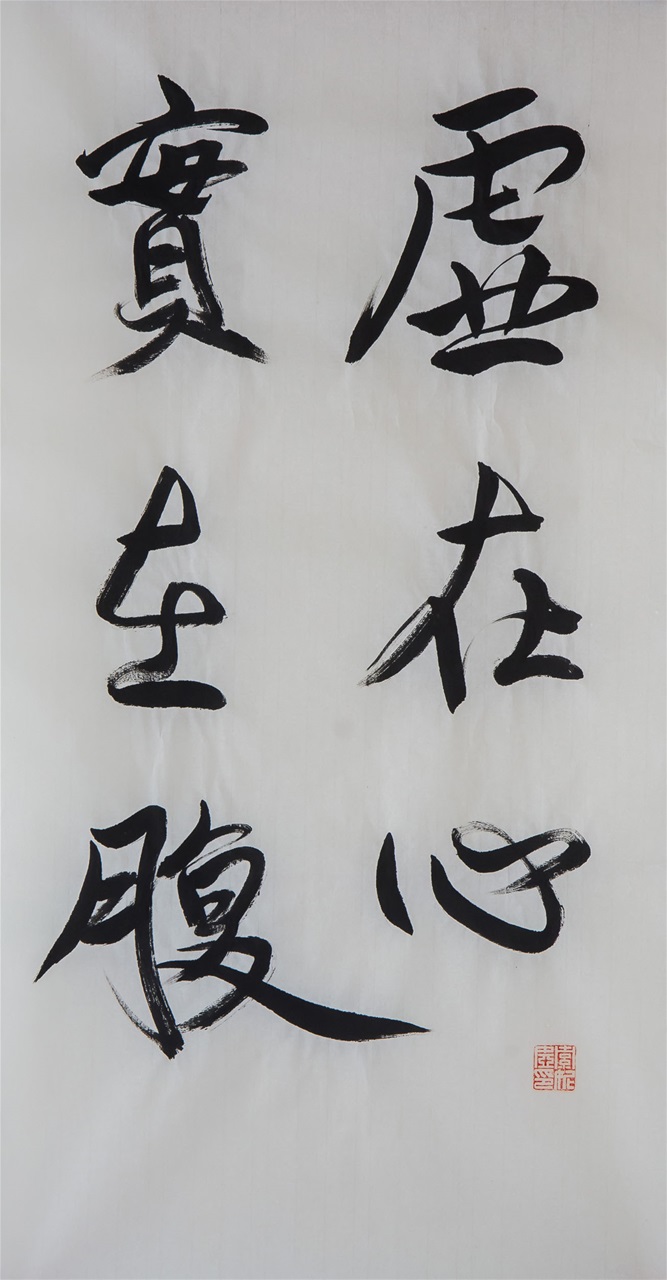 虛在心
實在腹